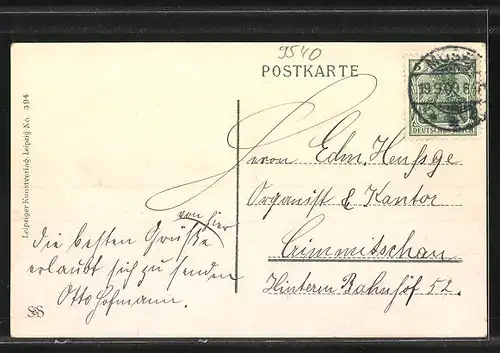 9540
POSTKARTE
19.9.09.6
DEUTSCHES REICH
Herrn Edm. Heufsge
Organist & Kantor
Crimmitschau
Hinterm Bahnhof 52.
von hier
die besten Grüße
erlaubt sich zu senden
Otto Hofmann.
Leipziger Kunstverlag, Leipzig-No. 394